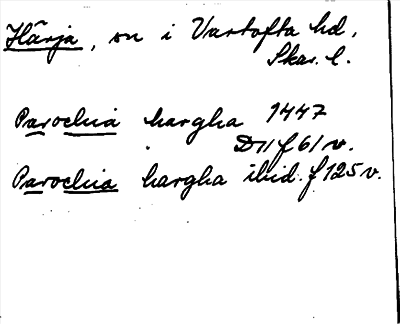 Härja, sn i Vartofta hd,
Skar. l.
Parochia hargha 1447
D 11 f 61 v.
Parochia hargha ibid. f 125 v.